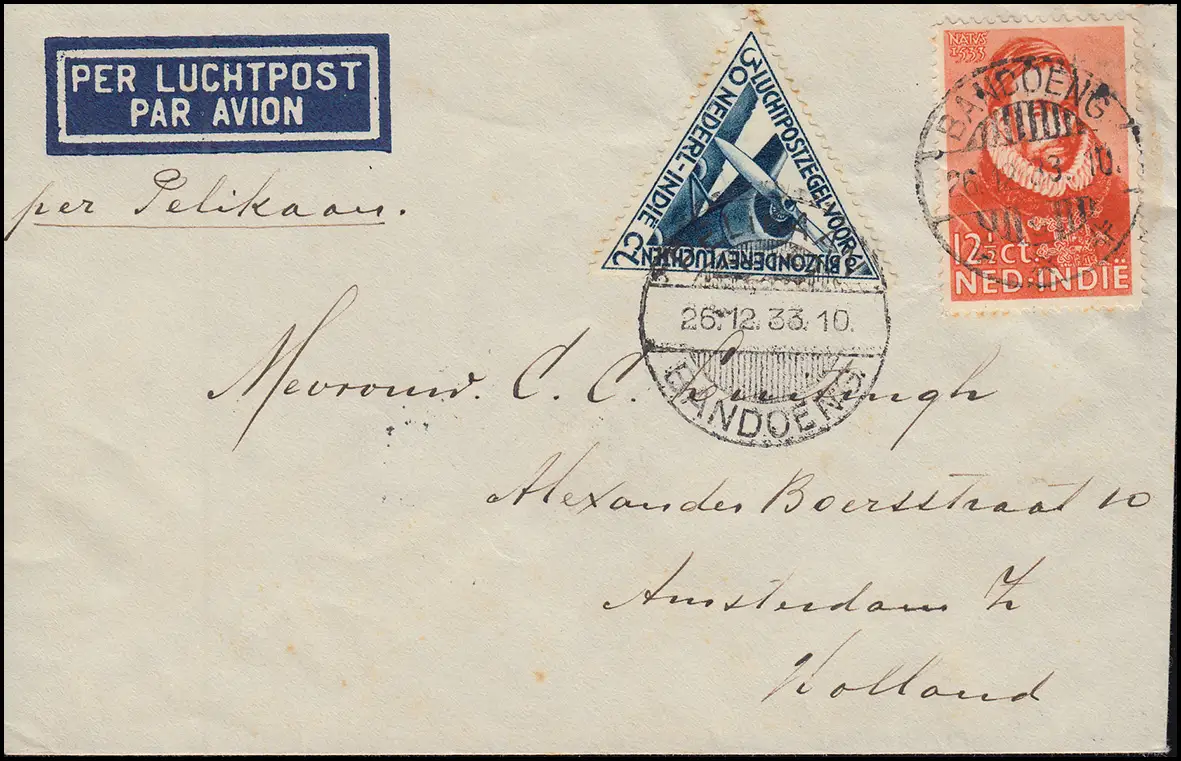 PER LUCHTPOST
PAR AVION
per Pelikaan.
30 NEDERL-INDIË CT
LUCHTPOSTZEGEL VOOR
BIJZONDERE VLUCHTEN
NATUS
1533
12½ ct.
NED-INDIË
BANDOENG
26.12.33.10.
26.12.33.10.
BANDOENG
Mevrouw. C. C.
Alexander Boersstraat 10
Amsterdam Z
Holland